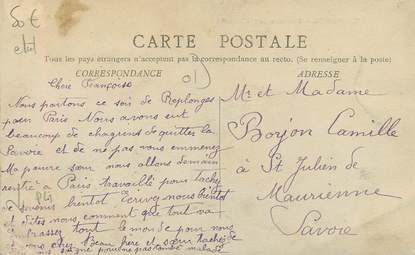 50 €
CARTE POSTALE
Tous les pays étrangers n'acceptent pas la correspondance au recto. (Se renseigner à la poste)
CORRESPONDANCE
Chere Françoise
Nous partons ce soir de Replonges
pour Paris Nous avons eut
beaucoup de chagrins de quitter la
Savoie et de ne pas vous emmener
Ma pauvre sœur nous allons demain
à Paris travaillé pour tacher
de bientot Ecrivez nous bientot
et dites nous comment que tout va
tout le monde pour nous
Beau frere et sœur tachez de
pour ne pas tombé malade
ADRESSE
Mr et Madame
Borjon Camille
à St Julien de
Maurienne
Savoie